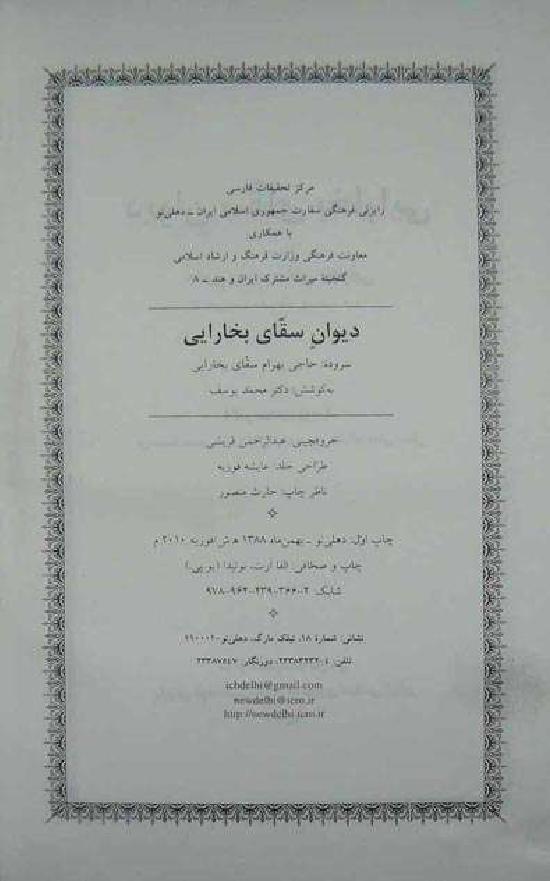 مرکز تحقیقات فارسی
رایزنی فرهنگی سفارت جمهوری اسلامی ایران ـ دهلی‌نو
با همکاری
معاونت فرهنگی وزارت فرهنگ و ارشاد اسلامی
گنجینه میراث مشترک ایران و هند ـ ۸
دیوانِ سقّای بخارایی
سروده: حاجی بهرام سقّای بخارایی
به‌کوشش: دکتر محمد یوسف
حروفچینی: عبدالرحمن قریشی
طراحی جلد: عایشه فوزیه
ناظر چاپ: حارث منصور
چاپ اول: دهلی‌نو ـ بهمن‌ماه ۱۳۸۸ ه‍.ش/فوریه ۲۰۱۰ م
چاپ و صحافی: الفا آرت، نوئیدا (یو.پی.)
شابک: ۲-۳۶۶-۴۳۹-۹۶۴-۹۷۸
نشانی: شماره ۱۸، تیلک مارگ، دهلی‌نو ۱۱۰۰۰۱
تلفن: ۴-۲۳۳۸۳۲۳۲، دورنگار: ۲۳۳۸۷۵۴۷
ichdelhi@gmail.com
newdelhi@icro.ir
http://newdelhi.icro.ir